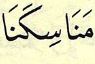 مَنَاسِكَنَا